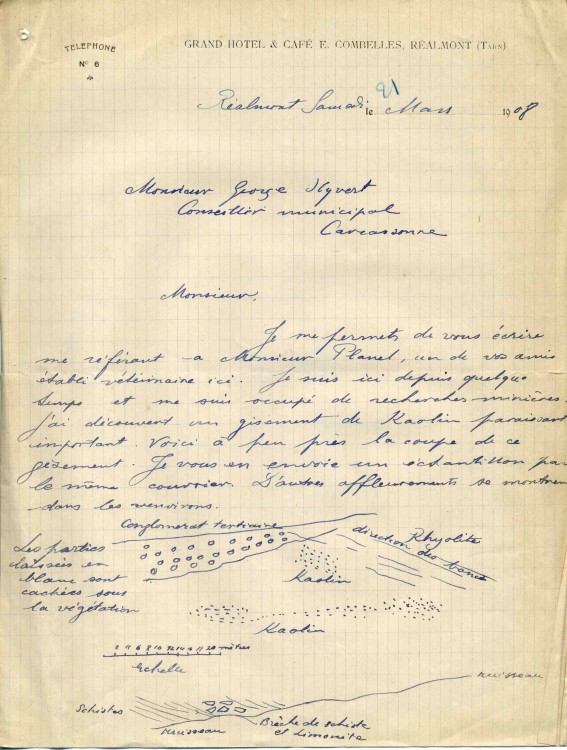 TELEPHONE
N° 6
GRAND HOTEL & CAFÉ E. COMBELLES, RÉALMONT (TARN)
Réalmont Samedi le 21 Mars 1908
Monsieur George Hyvert
Conseiller municipal
Carcassonne
Monsieur,
Je me permets de vous écrire
me référant a Monsieur Planel, un de vos amis
établi vétérinaire ici. Je suis ici depuis quelque
temps et me suis occupé de recherches minières.
J'ai découvert un gisement de Kaolin paraissant
important. Voici à peu près la coupe de ce
gisement. Je vous en envoie un échantillon par
le même courrier. D'autres affleurements se montrent
dans les environs.
Conglomérat tertiaire
Rhyolite
direction des bancs
Les parties
laissées en
blanc sont
cachées sous
la végétation
Kaolin
Kaolin
0 2 4 6 8 10 12 14 16 18 20 mètres
Echelle
ruisseau
Schistes
ruisseau
Brèche de schiste
et Limonite